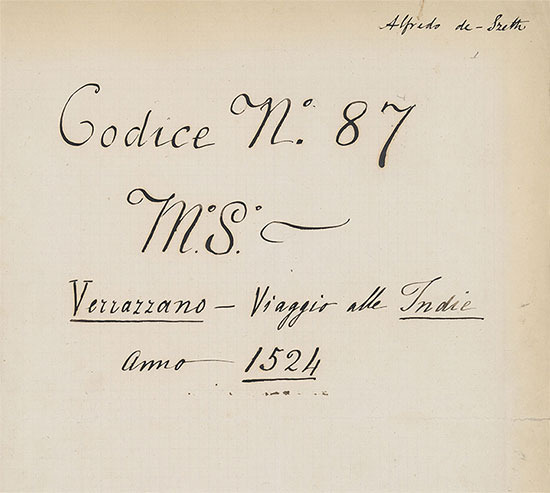 Alfredo de-Szeth
Codice N.° 87
M.°S.°
Verrazzano — Viaggio alle Indie
Anno — 1524